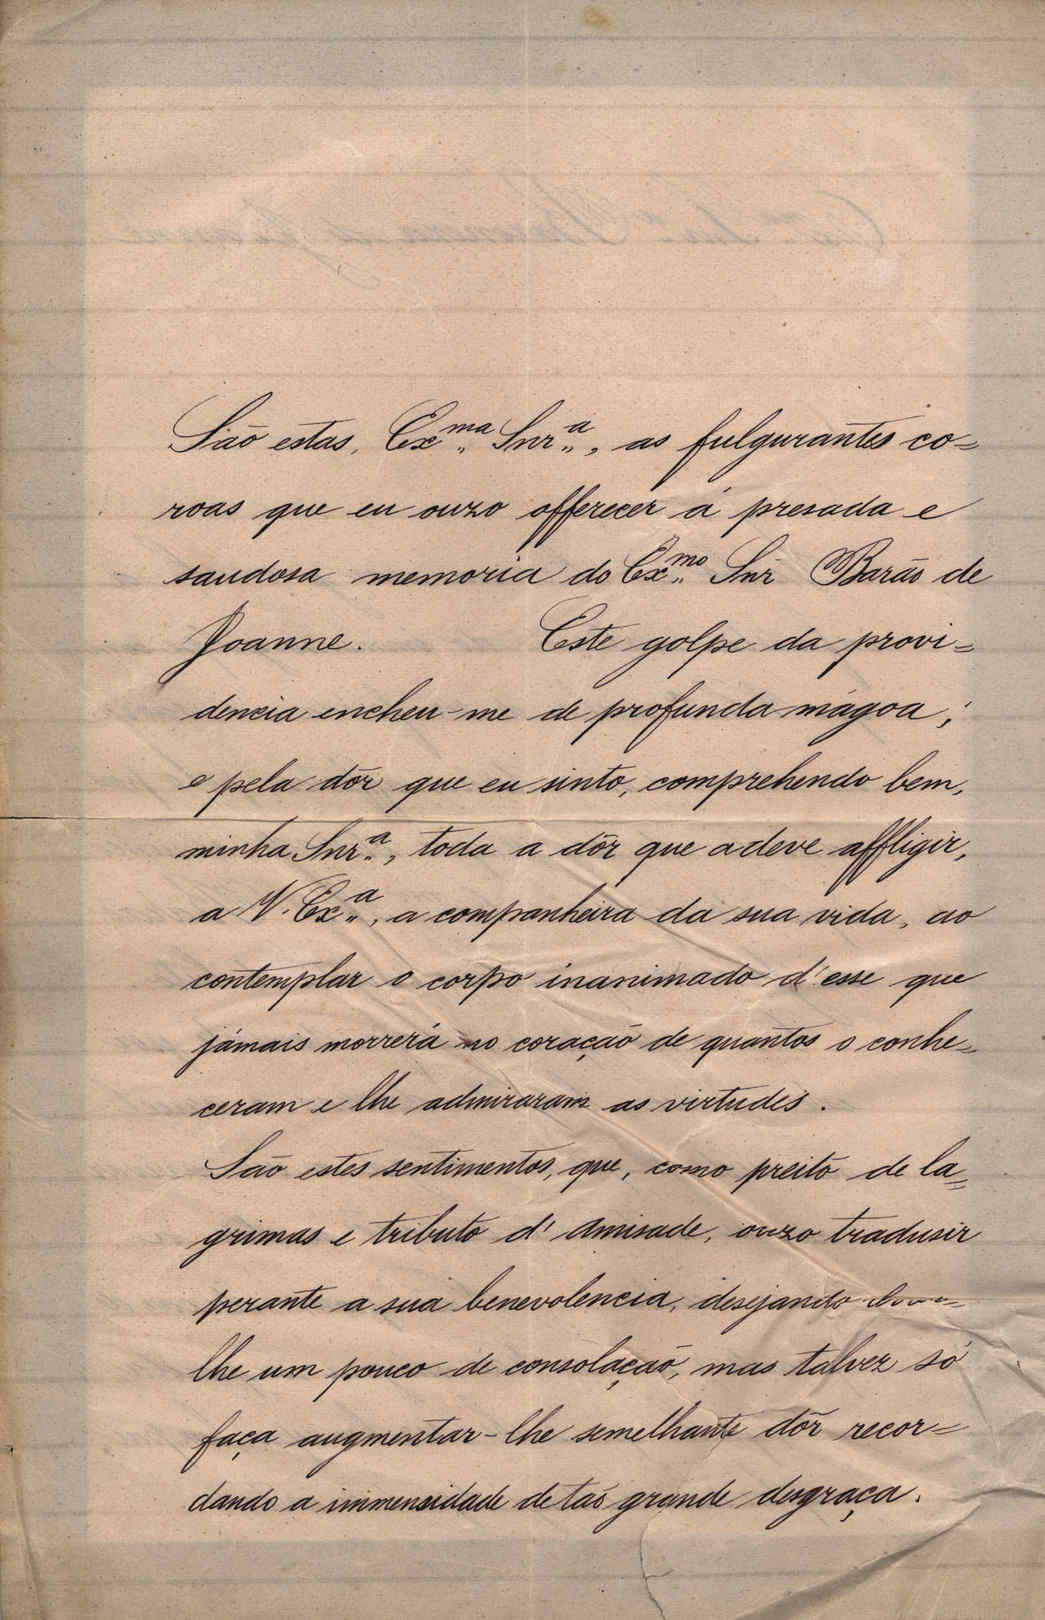 São estas, Ex.ma Snr.a, as fulgurantes co=
roas que eu ouzo offerecer á presada e
saudosa memoria do Ex.mo Snr Barão de
Joanne. Este golpe da provi=
dencia encheu-me de profunda mágoa;
e pela dôr que eu sinto, comprehendo bem,
minha Snr.a, toda a dôr que a deve affligir,
a V. Ex.a, a companheira da sua vida, ao
contemplar o corpo inanimado d'esse que
jámais morrerá no coração de quantos o conhe=
ceram e lhe admiraram as virtudes.
São estes sentimentos, que, como preito de la=
grimas e tributo d'amisade, ouzo tradusir
perante a sua benevolencia, desejando
lhe um pouco de consolação, mas talvez só
faça augmentar-lhe semelhante dôr recor=
dando a immensidade de tão grande desgraça.